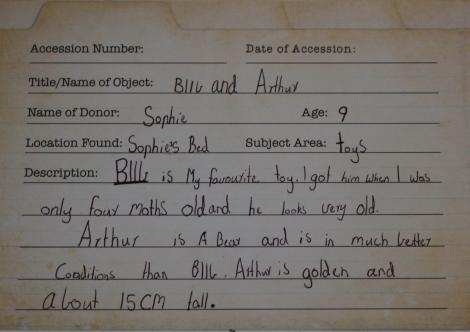 Accession Number: Date of Accession:
Title/Name of Object: BIIL and Arthur
Name of Donor: Sophie Age: 9
Location Found: Sophie's Bed Subject Area: toys
Description: BIIL is My favourite toy. I got him when I was
only four moths old and he looks very old.
Arthur is A Bear and is in much better
Conditions than BIIL. Arthur is golden and
about 15CM tall.